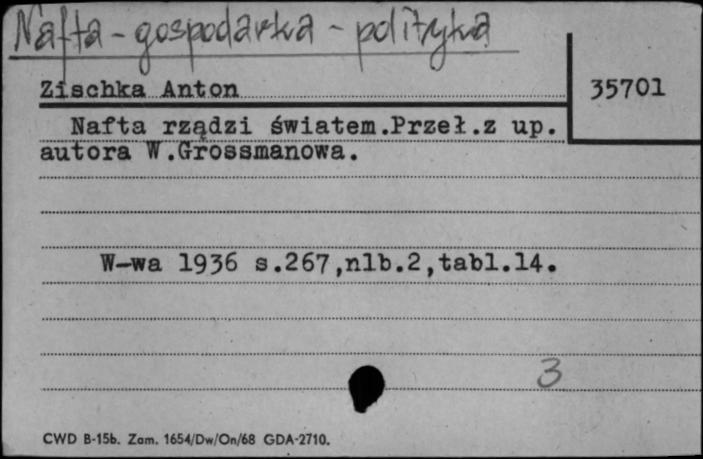 Nafta - gospodarka - polityka
Zischka Anton
35701
Nafta rządzi światem.Przeł.z up.
autora W.Grossmanowa.
W-wa 1936 s.267,nlb.2,tabl.14.
3
CWD B-15b. Zam. 1654/Dw/On/68 GDA-2710.